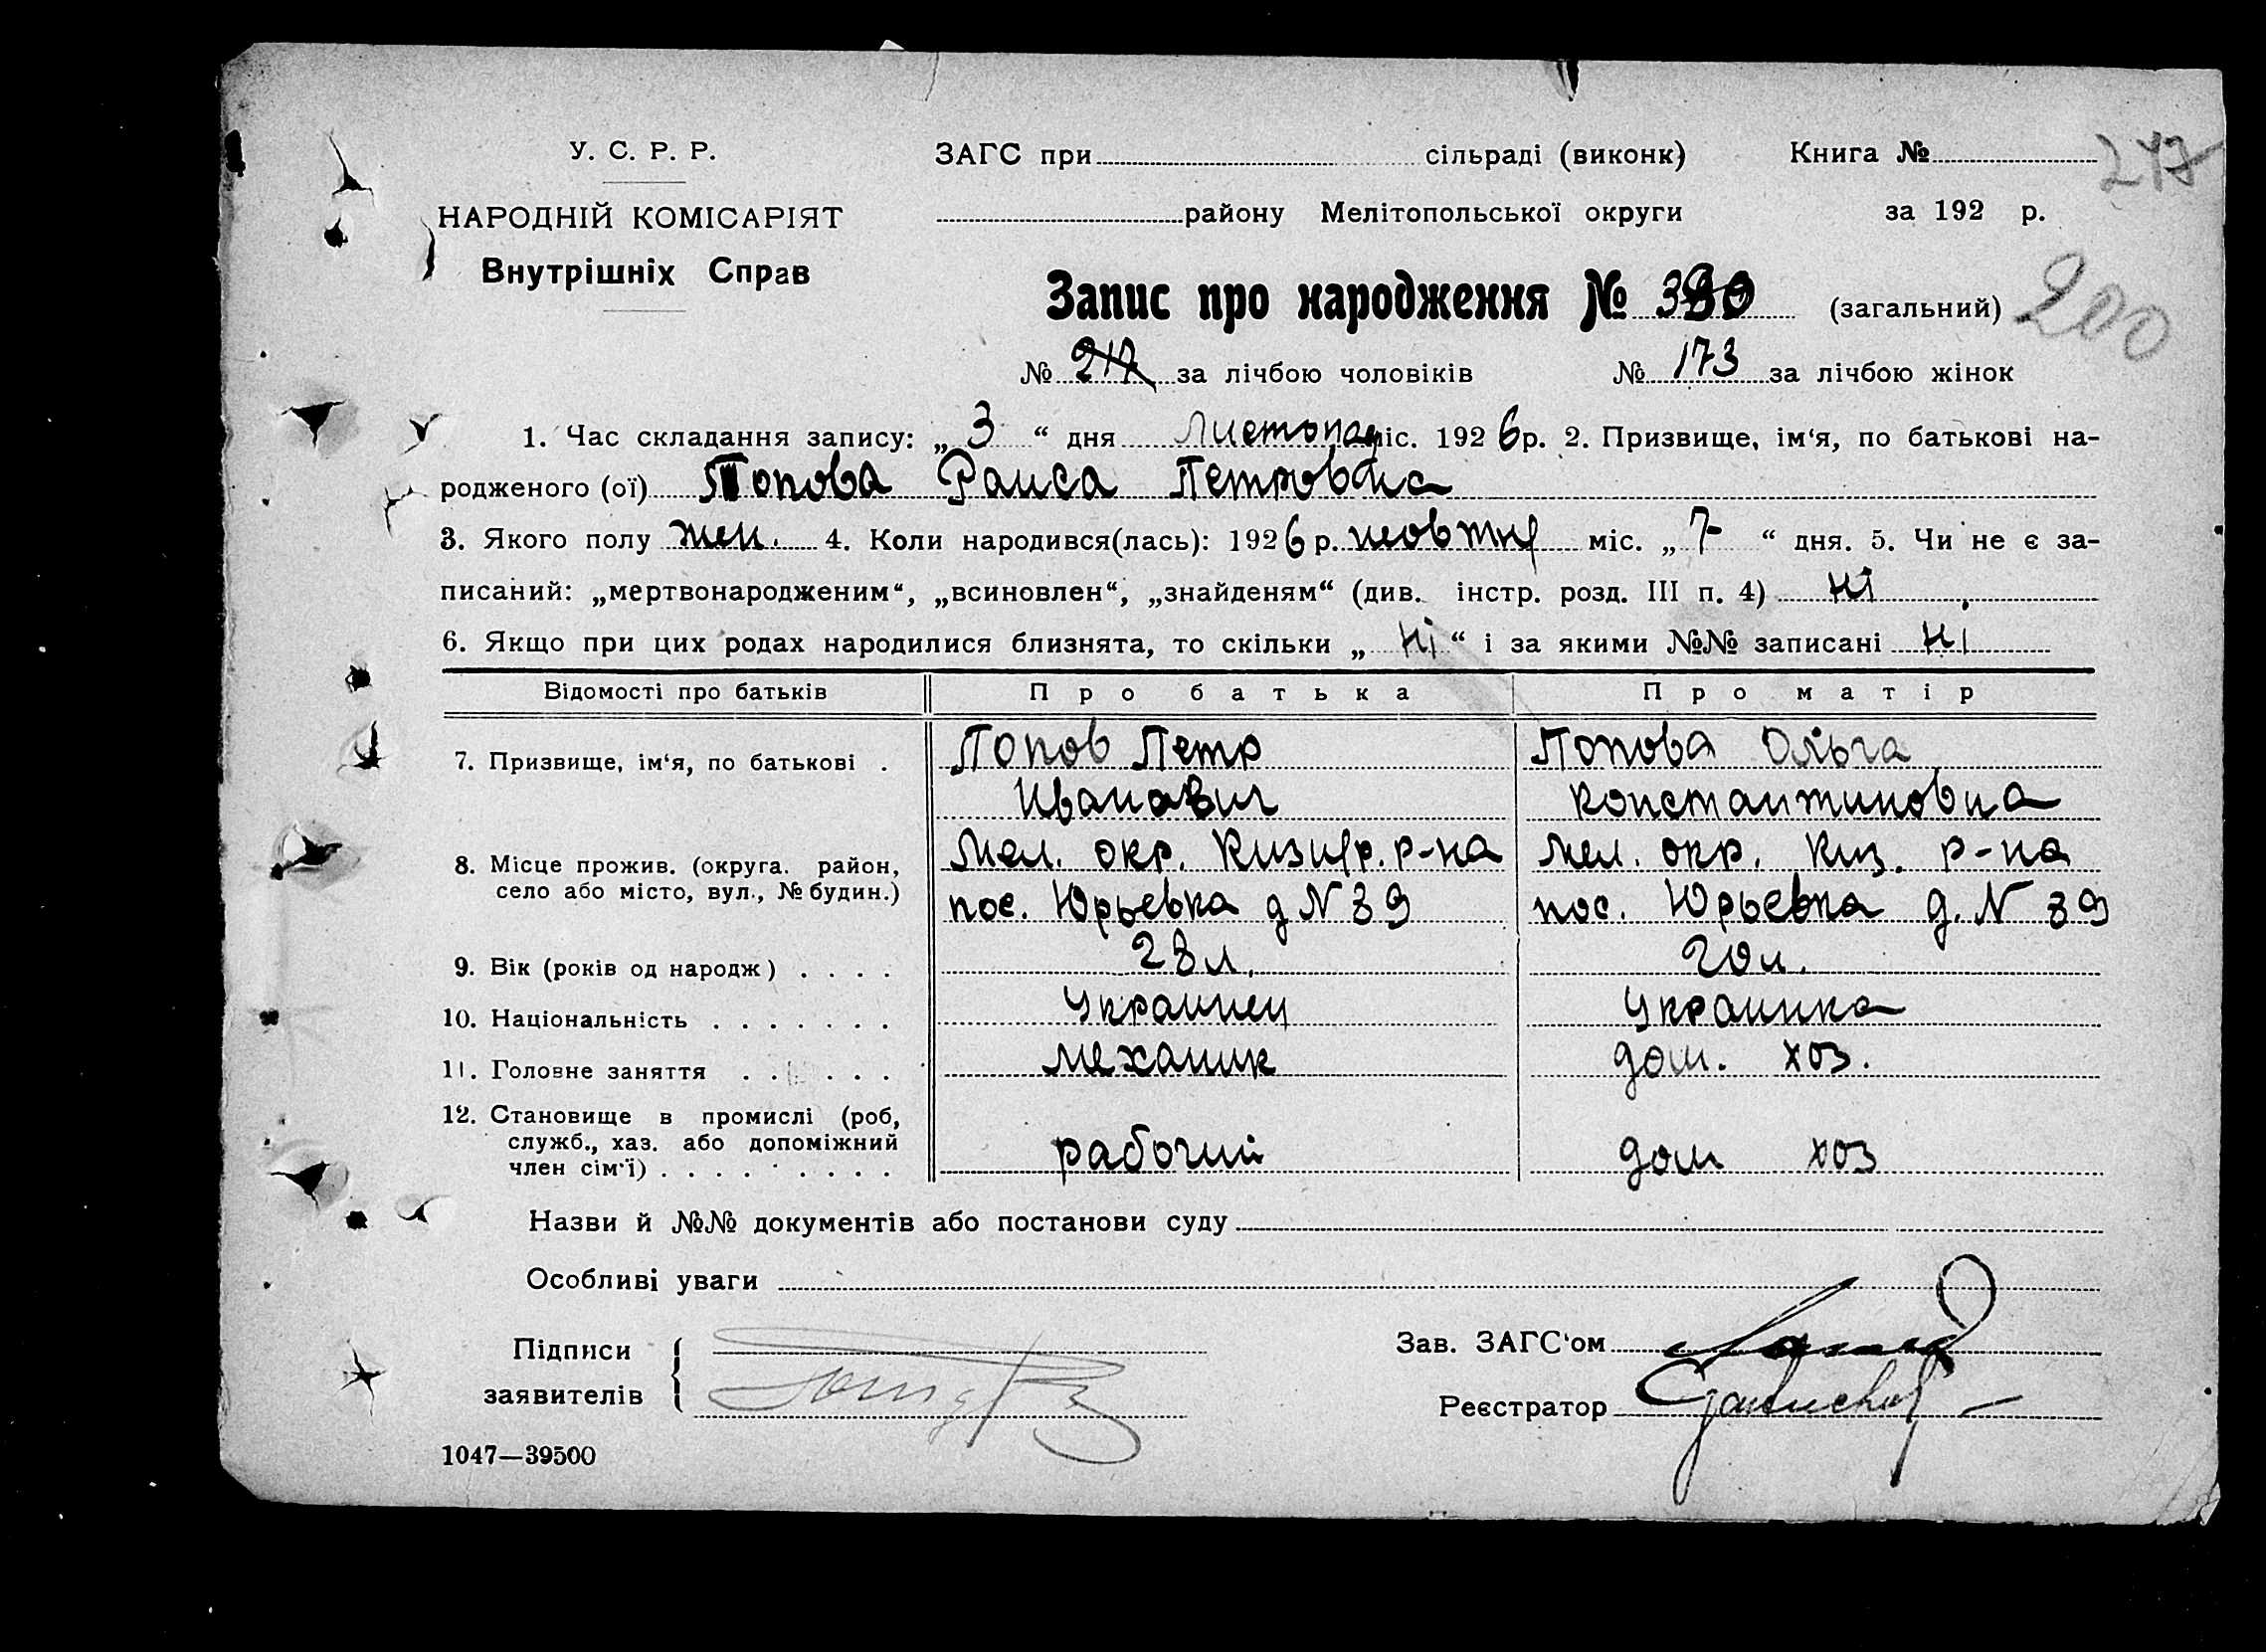 У. С. Р. Р.
НАРОДНІЙ КОМІСАРІЯТ
Внутрішніх Справ
ЗАГС при сільраді (виконк) Книга №
247
району Мелітопольської округи за 192 р.
Запис про народження № 390 (загальний)
200
№ 217 за лічбою чоловіків № 173 за лічбою жінок
1. Час складання запису: „ 3 “ дня Листопад міс. 1926 р. 2. Призвище, ім‘я, по батькові на-
родженого (ої) Попова Раиса Петровна
3. Якого полу жен. 4. Коли народився(лась): 1926 р. жовтня міс. „ 7 “ дня. 5. Чи не є за-
писаний: „мертвонародженим“, „всиновлен“, „знайденям“ (див. інстр. розд. III п. 4) ні
6. Якщо при цих родах народилися близнята, то скільки „ ні “ і за якими №№ записані ні
Відомості про батьків Про батька Про матір
7. Призвище, ім‘я, по батькові . Попов Петр Попова Ольга
Иванович Константиновна
8. Місце прожив. (округа. район, Мел. окр. Кизияр. р-на Мел. окр. Киз. р-на
село або місто, вул., № будин.) пос. Юрьевка д N 39 пос. Юрьевка д. N 39
9. Вік (років од народж) . . . . 28 л. 20 л.
10. Національність . . . . . . . Украинец Украинка
11. Головне заняття . . . . . . механик дом. хоз.
12. Становище в промислі (роб,
служб., хаз. або допоміжний
член сім‘ї) . . . . . . . . . рабочий дом хоз
Назви й №№ документів або постанови суду
Особливі уваги
Підписи
заявителів
Зав. ЗАГС‘ом
Реєстратор
1047—39500